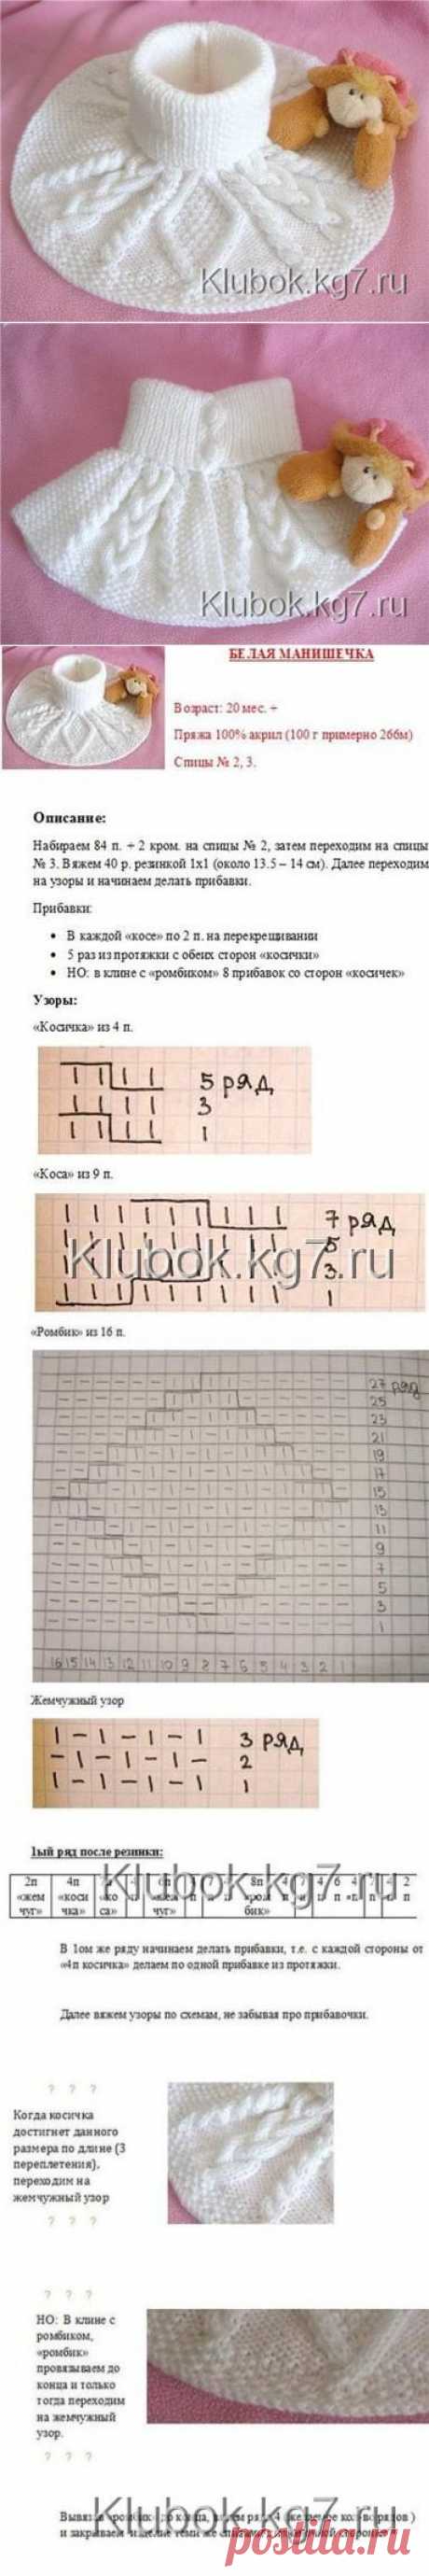 Klubok.kg7.ru
Klubok.kg7.ru
БЕЛАЯ МАНИШЕЧКА
Возраст: 20 мес. +
Пряжа 100% акрил (100 г примерно 266м)
Спицы № 2, 3.
Описание:
Набираем 84 п. + 2 кром. на спицы № 2, затем переходим на спицы
№ 3. Вяжем 40 р. резинкой 1х1 (около 13.5 – 14 см). Далее переходим
на узоры и начинаем делать прибавки.
Прибавки:
• В каждой «косе» по 2 п. на перекрещивании
• 5 раз из протяжки с обеих сторон «косички»
• НО: в клине с «ромбиком» 8 прибавок со сторон «косичек»
Узоры:
«Косичка» из 4 п.
5 ряд
3
1
«Коса» из 9 п.
7 ряд
5
3
1
Klubok.kg7.ru
«Ромбик» из 16 п.
27 ряд
25
23
21
19
17
15
13
11
9
7
5
3
1
16 15 14 13 12 11 10 9 8 7 6 5 4 3 2 1
Жемчужный узор
3 ряд
2
1
1ый ряд после резинки:
Klubok.kg7.ru
2п 4п 8п 4 6 4 2
«жем «коси «ко п п п
чуг» чка» са» чуг» бик»
В 1ом же ряду начинаем делать прибавки, т.е. с каждой стороны от
«4п косичка» делаем по одной прибавке из протяжки.
Далее вяжем узоры по схемам, не забывая про прибавочки.
? ? ?
Когда косичка
достигнет данного
размера по длине (3
переплетения),
переходим на
жемчужный узор
? ? ?
? ? ?
НО: В клине с
ромбиком,
«ромбик»
провязываем до
конца и только
тогда переходим
на жемчужный
узор.
? ? ?
Klubok.kg7.ru
postila.ru